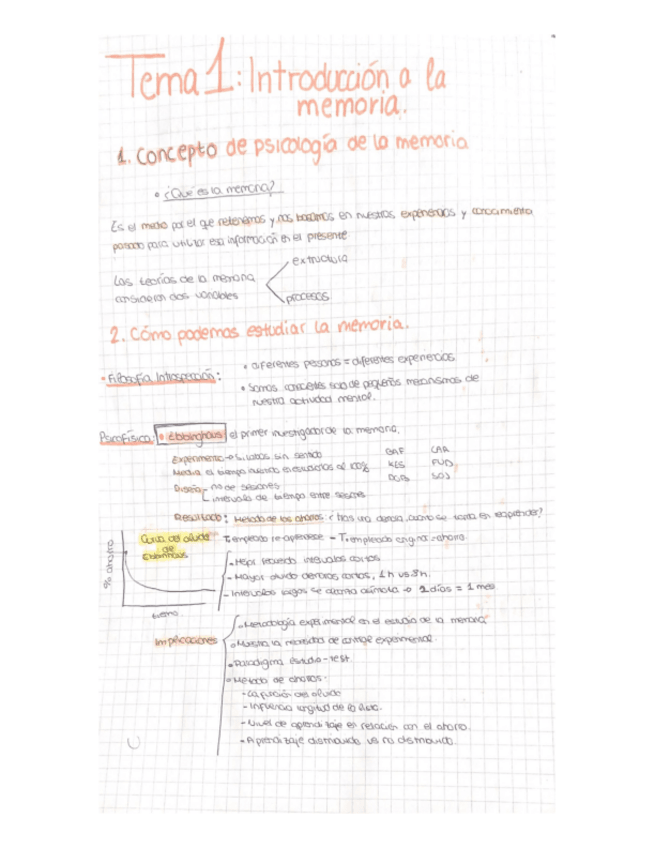 Tema 1: Introducción a la
memoria.
1. Concepto de psicología de la memoria
• ¿Qué es la memoria?
Es el medio por el que retenemos y nos basamos en nuestras experiencias y conocimiento
pasado para utilizar esa información en el presente
Las teorías de la memoria
consideran dos variables
extructura
procesos
2. Cómo podemos estudiar la memoria.
• Filosofía Introspección:
• diferentes personas = diferentes experiencias
• Somos conscientes solo de pequeños mecanismos de
nuestra actividad mental.
Psicofísica: • Ebbinghaus el primer investigador de la memoria.
Experimento → Sílabas sin sentido
Medía el tiempo en al 100%
Diseño - no de sesiones
intervalos de tiempo entre sesiones
LAR
FUD
Resultado: Método de los ahorros ¿Tras una demora, cuánto se tarda en reaprender?
Curva del olvido
de
Ebbinghaus
% ahorro
tiempo
T. empleado re-aprenderse - T. empleado original = ahorro
- Mejor recuerdo intervalos cortos
- Mayor olvido demoras cortas, 1h vs 8h.
- Intervalos largos se ahorra → 2 días = 1 mes
Implicaciones
• Metodología experimental en el estudio de la memoria
• Muestra la necesidad de control experimental.
• Paradigma estudio-test.
• Método de ahorros:
- La función del olvido
- Influencia longitud de la lista.
- Nivel de aprendizaje en relación con el ahorro.
- Aprendizaje distribuido vs no distribuido.